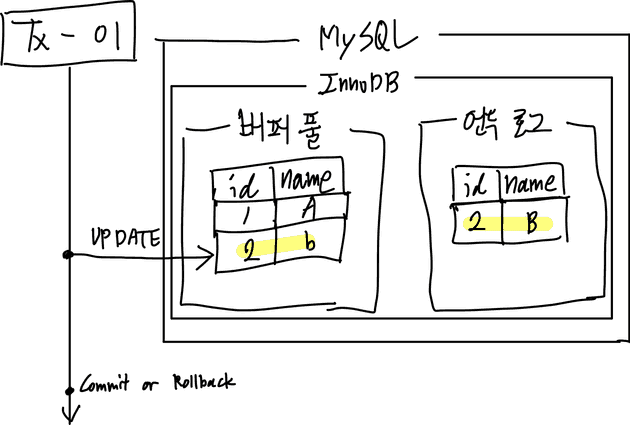 Tx - 01
MySQL
InnoDB
버퍼 풀
언두 로그
id name
1 A
2 b
id name
2 B
UPDATE
Commit or Rollback